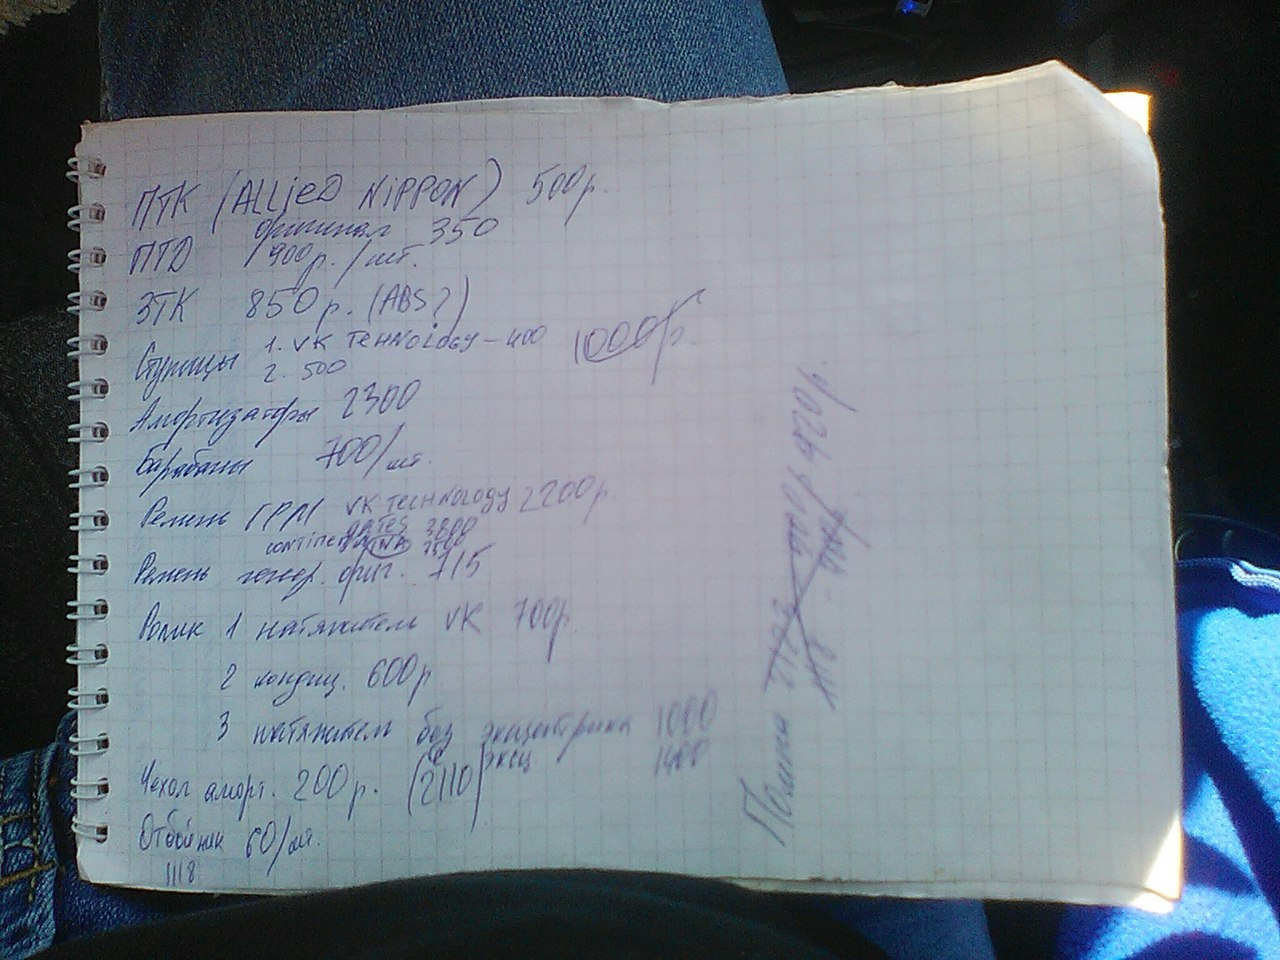 ПТК (ALLiED NiPPON) 500р.
оригинал 350
ПТД 900р./шт.
ЗТК 850р. (ABS?)
Ступицы 1. VK TEHNOlOGY - 400 1000р.
2. 500
Амортизаторы 2300
Барабаны 700/шт.
Ремень ГРМ VK TECHNOLOGY 2200р
GATES 2800
CONTINENTAL
Ремень генер. ориг. 715
Ролик 1 натяжитель VK 700р
2 кондиц. 600р
3 натяжитель без эксцентрика 1000
с эксц 1400
Чехол аморт. 200р. (2110)
Отбойник 60/шт.
1118
420р.